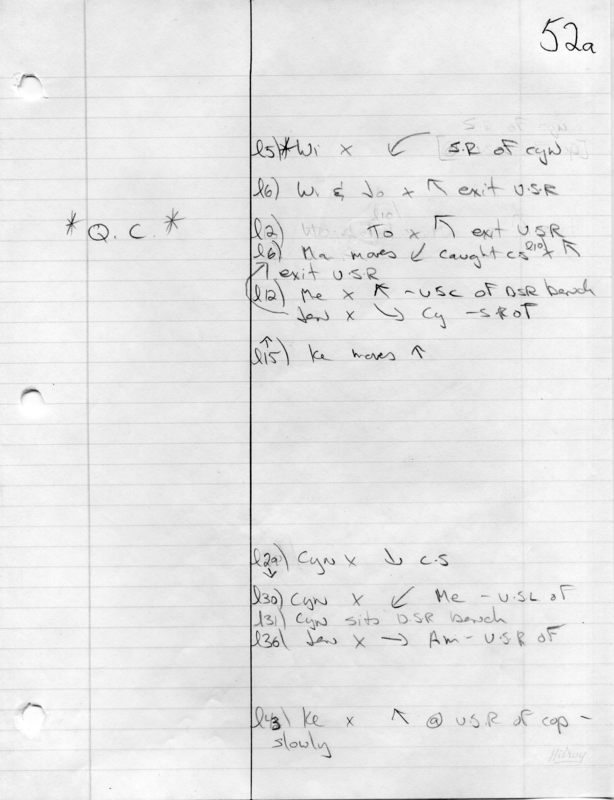 52a
l5) *Wi x ↙ [S.R of cyn
l6) Wi & Jo x ↖ exit U.S.R
* Q. C. *
l2) To x ↖ exit U.S.R
l6) Ma moves ↙ caught cs l10 x ↖
exit U.S.R
l12) Me x ↖ - USC of DSR bench
Jen x ↘ Cy - S.R of
l15) Ke moves ↑
l29) Cyn x ↓ C.S
l30) Cyn x ↙ Me - U.S.L of
l31) Cyn sits DSR bench
l36) Jen x → Am - U.S.R of
l43) Ke x ↖ @ U.S.R of cop -
slowly
Hilroy